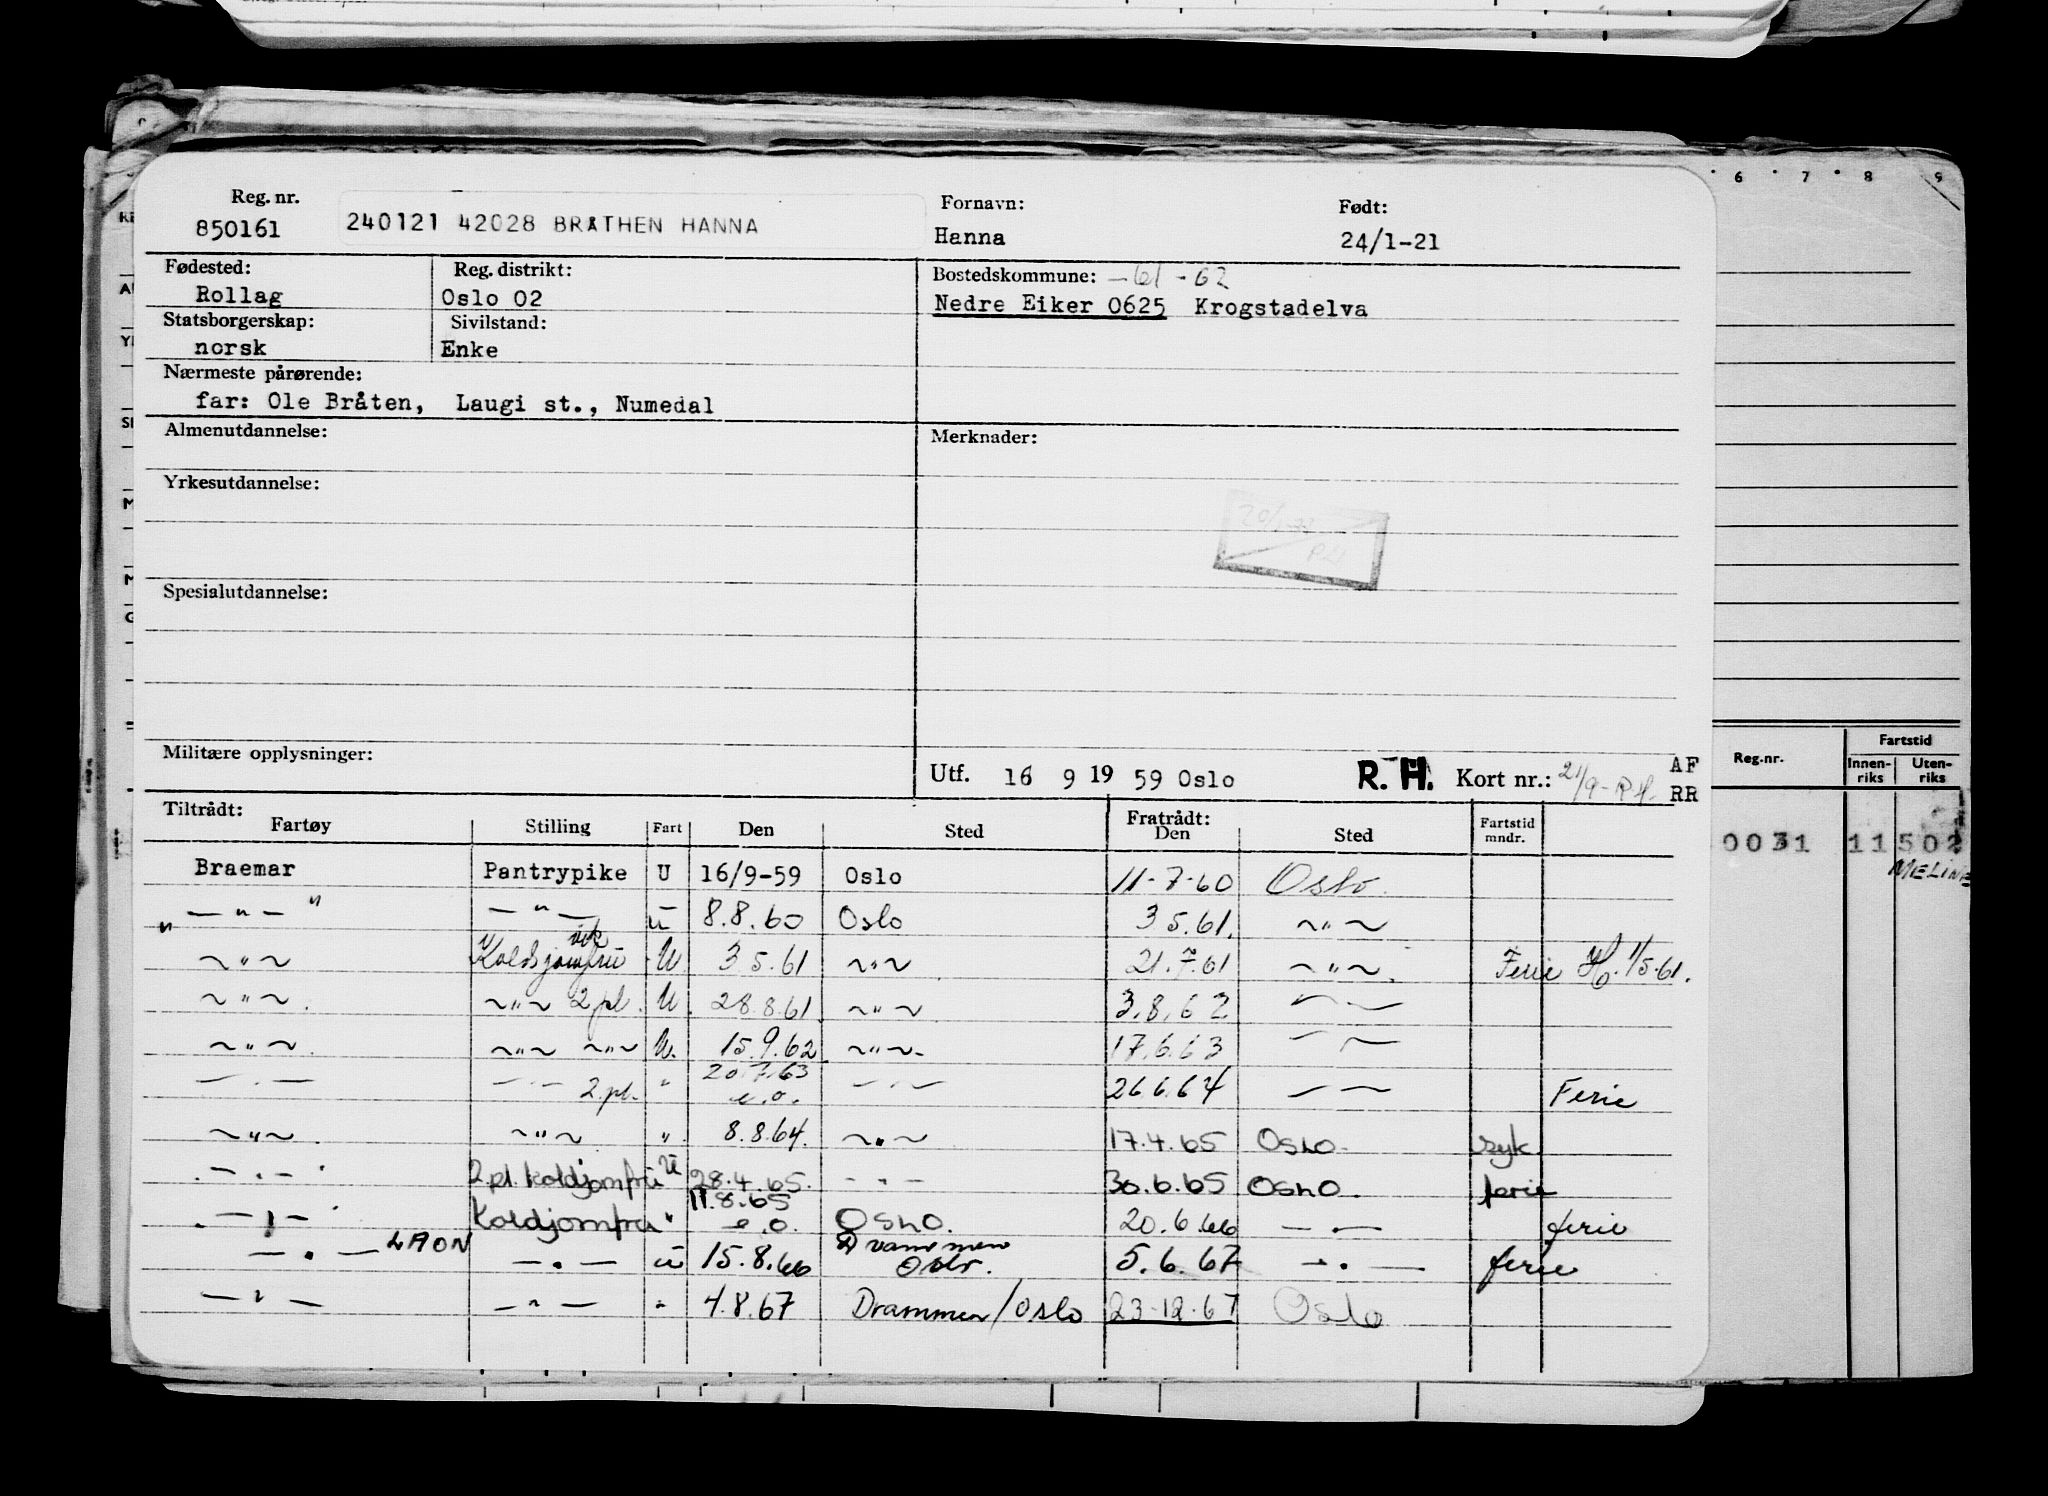 6 7 8 9
Reg. nr. Fornavn: Født:
850161 240121 42028 BRÅTHEN HANNA Hanna 24/1-21
Fødested: Reg. distrikt: Bostedskommune: -61-62
Rollag Oslo 02 Nedre Eiker 0625 Krogstadelva
Statsborgerskap: Sivilstand:
norsk Enke
Nærmeste pårørende:
far: Ole Bråten, Laugi st., Numedal
Almenutdannelse: Merknader:
Yrkesutdannelse:
Spesialutdannelse:
Militære opplysninger:
Utf. 16 9 19 59 Oslo R. H. Kort nr.: 21/9- AF
RR
Reg.nr. Fartstid
Innen-riks Uten-riks
Tiltrådt: Fratrådt:
Fartøy Stilling Fart Den Sted Den Sted Fartstid mndr.
0031 11 502
MELINE
Braemar Pantrypike U 16/9-59 Oslo 11-7-60 Oslo.
" — " — " — " — U 8.8.60 Oslo 3 5.61. ~ " ~
~ " ~ Koldjomfru U 3 5.61 ~ " ~ 21.7.61 ~ " ~. Ferie 1/5.61.
~ " ~. ~ " ~ 2 pl. U. 28.8.61. ~ " ~ 3.8.62 — —
~ " ~. ~ " ~ ~ " ~ U. 15.9.62 ~ " ~. 17.6.63 — —
— . — — . — 2.pl. " 20.7.63 e.o. — . — 26.6.64 — — Ferie
~ " ~. ~ " ~ " 8.8.64. ~ " ~ 17.4.65 Oslo. syk.
. — . — . 2 pl. koldjomfru U 28.4.65. — . — 30.6.65 OSLO. ferie
. — " — . Koldjomfru " 11.8.65 e.o. OSLO. 20.6.66 — . — ferie
— . — LAON — . — U 15.8.66 Drammen Oslo. 5.6.67 — . — ferie
— " — — " — " 4.8.67 Drammen/Oslo 23-12-67 Oslo